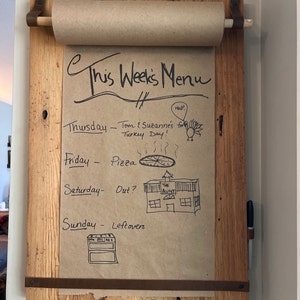 This Week's Menu
Thursday - Tom & Suzanne's for
Turkey Day!
Friday - Pizza
Saturday - Out?
Sunday - Leftovers